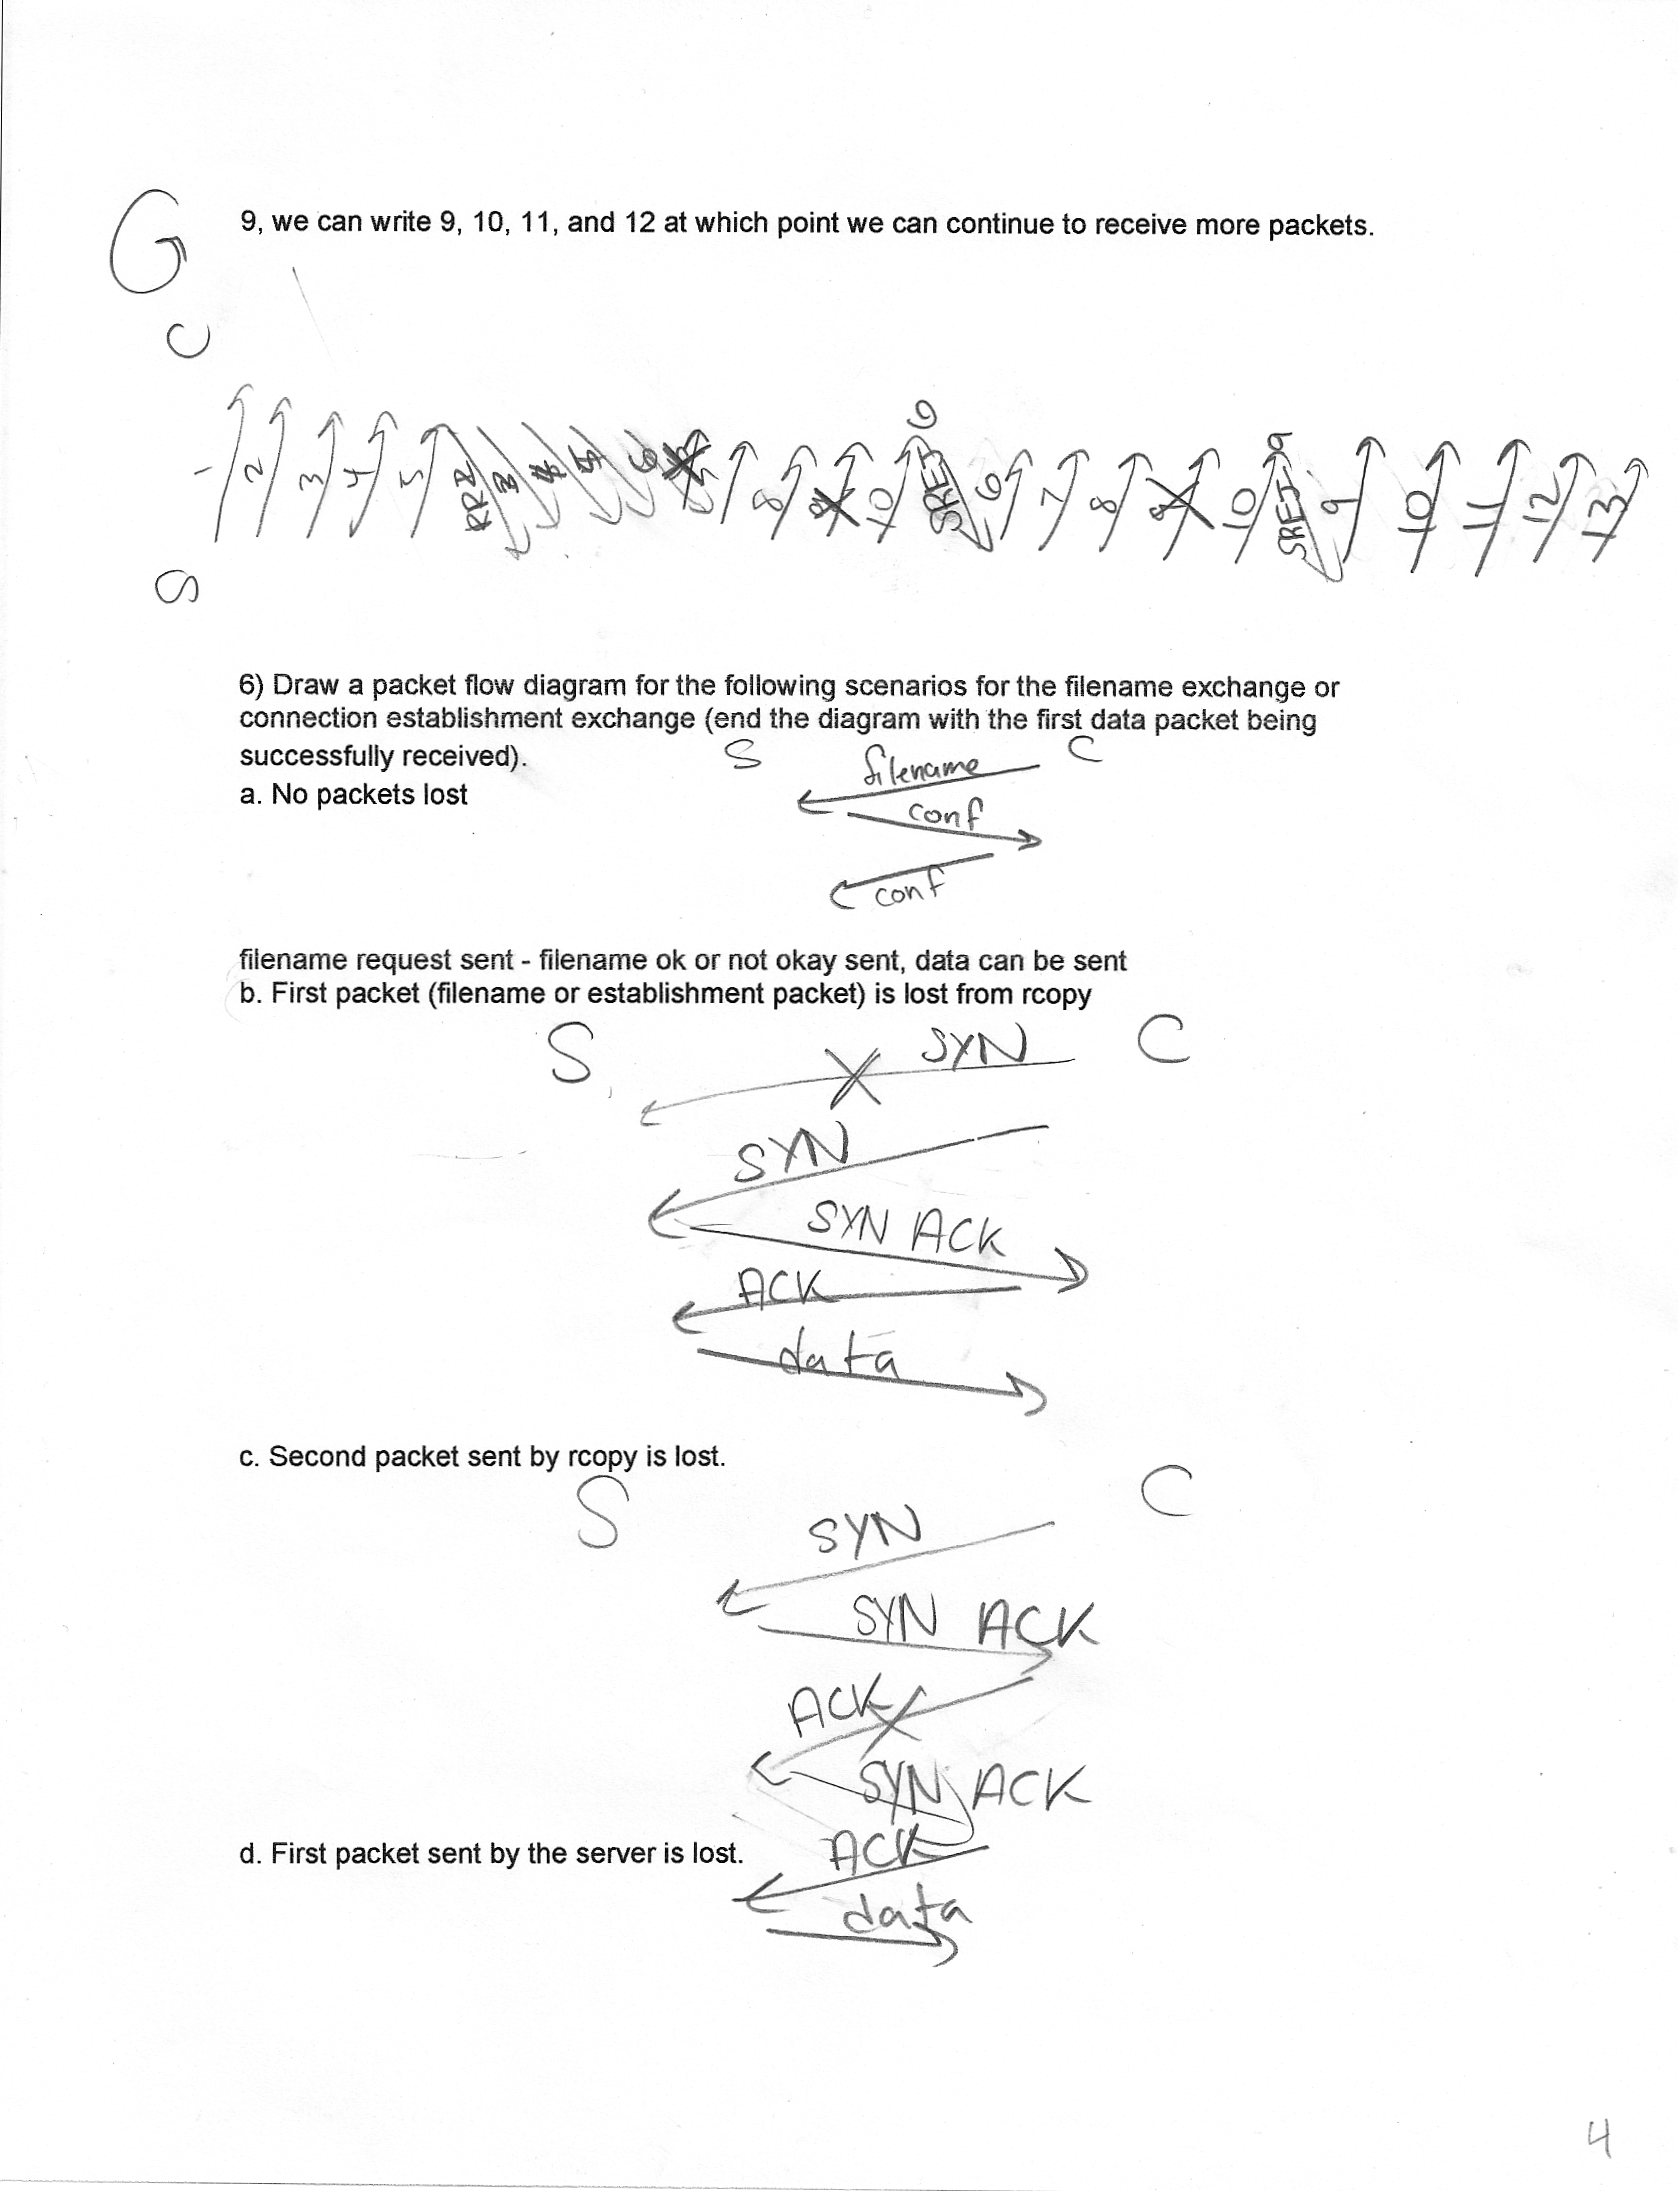 G
9, we can write 9, 10, 11, and 12 at which point we can continue to receive more packets.
C
1 2 3 4 5 RR2 3 4 5 6 8 10 SREJ 6 6 7 8 9 10 SREJ 9 9 10 11 12 13
S
6) Draw a packet flow diagram for the following scenarios for the filename exchange or
connection establishment exchange (end the diagram with the first data packet being
successfully received).
S filename C
a. No packets lost
conf
conf
filename request sent - filename ok or not okay sent, data can be sent
b. First packet (filename or establishment packet) is lost from rcopy
S SYN C
SYN
SYN ACK
ACK
data
c. Second packet sent by rcopy is lost.
S C
SYN
SYN ACK
ACK
SYN ACK
d. First packet sent by the server is lost. ACK
data
4